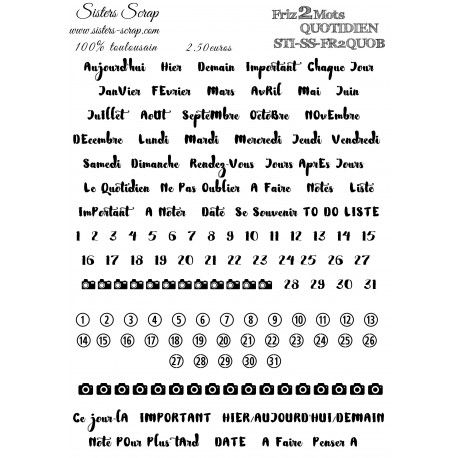 Sisters Scrap
www.sisters-scrap.com
100% toulousain 2.50euros
Friz2Mots
QUOTIDIEN
STI-SS-FR2QUOB
Aujourdhui Hier Demain Important Chaque Jour
JanVier FEvrier Mars AvRil Mai Juin
JuilleT AoUt SeptèMbre OctoBre NOvEmbre
DEcembre Lundi Mardi Mercredi Jeudi Vendredi
Samedi Dimanche Rendez-Vous Jours AprEs Jours
Le Quotidien Ne Pas Oublier A Faire Notés Listé
ImPortant A Notér Daté Se Souvenir TO DO LISTE
1 2 3 4 5 6 7 8 9 10 11 12 13 14 15
16 17 18 19 20 21 22 23 24 25 26 27
28 29 30 31
1 2 3 4 5 6 7 8 9 10 11 12 13
14 15 16 17 18 19 20 21 22 23 24 25 26
27 28 29 30 31
Ce jour-lA IMPORTANT HIER/AUJOURD'HUI/DEMAIN
Noté POur Plus tArd DATE A Faire Penser A